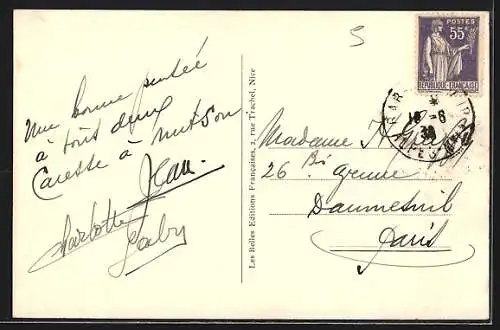 Une bonne pensée
à tout deux
Caresse à
Jean.
Charlotte
Gaby
Les Belles Editions Françaises, 2, rue Trachel, Nice
5
POSTES
55c
REPUBLIQUE FRANÇAISE
PARIS
18 - 6
38
Madame
26 Bis Avenue
Daumesnil
Paris